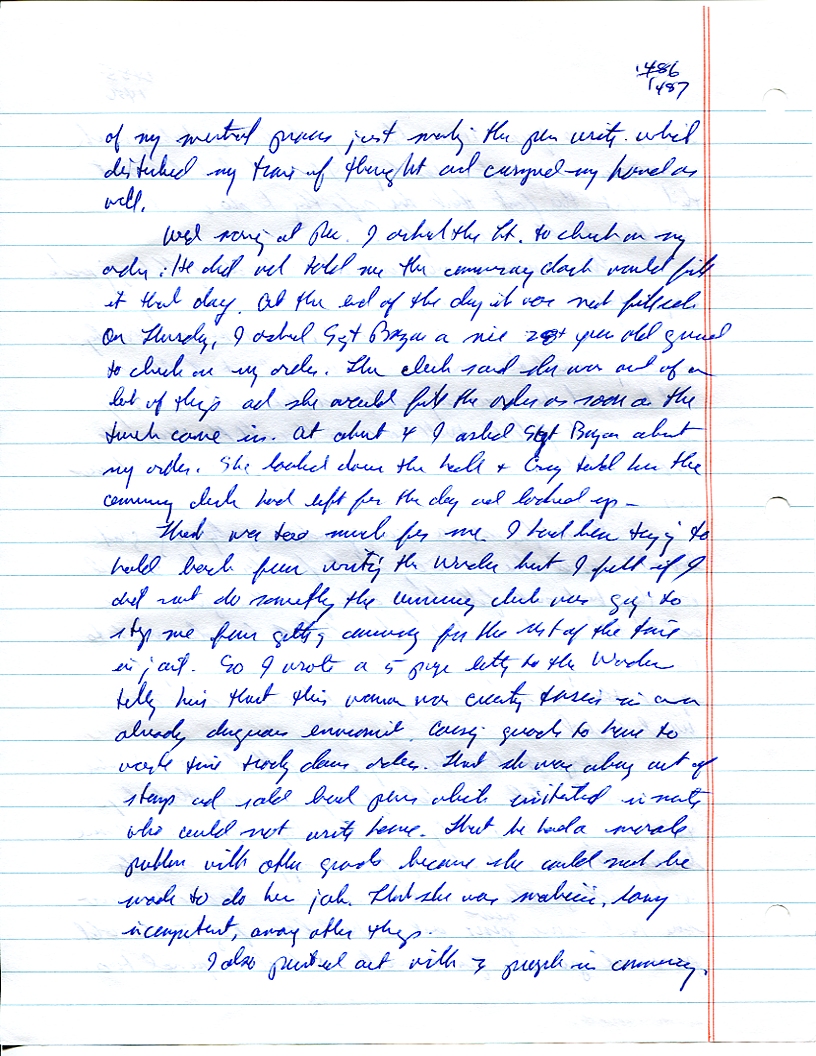 1486
1487
of my mental process just making the pen write which
disturbed my train of thought and cramped my hand as
well.
Wed morning at Rec. I asked the Lt. to check on my
order. He did and told me the commissary clerk would fill
it that day. At the end of the day it was not filled.
On Thursday, I asked Sgt a nice year old guard
to check on my order. The clerk said she was out of a
lot of things and she would fill the order as soon as the
truck came in. At about 4 I asked Sgt about
my order. She looked down the hall & told her the
commissary clerk had left for the day and locked up -
That was too much for me. I had been trying to
hold back from writing the Warden but I felt if I
did not do something the commissary clerk was going to
stop me from getting commissary for the rest of the time
in jail. So I wrote a 5 page letter to the Warden
telling him that this woman was creating tension in an
already dangerous environment. Causing guards to have to
waste time tracking down orders. That she was always out of
stamps and sold bad pens which irritated inmates
who could not write home. That he had a morale
problem with other guards because she could not be
made to do her job. That she was malicious, lazy
incompetent, among other things.
I also pointed out with 3 people in commissary,